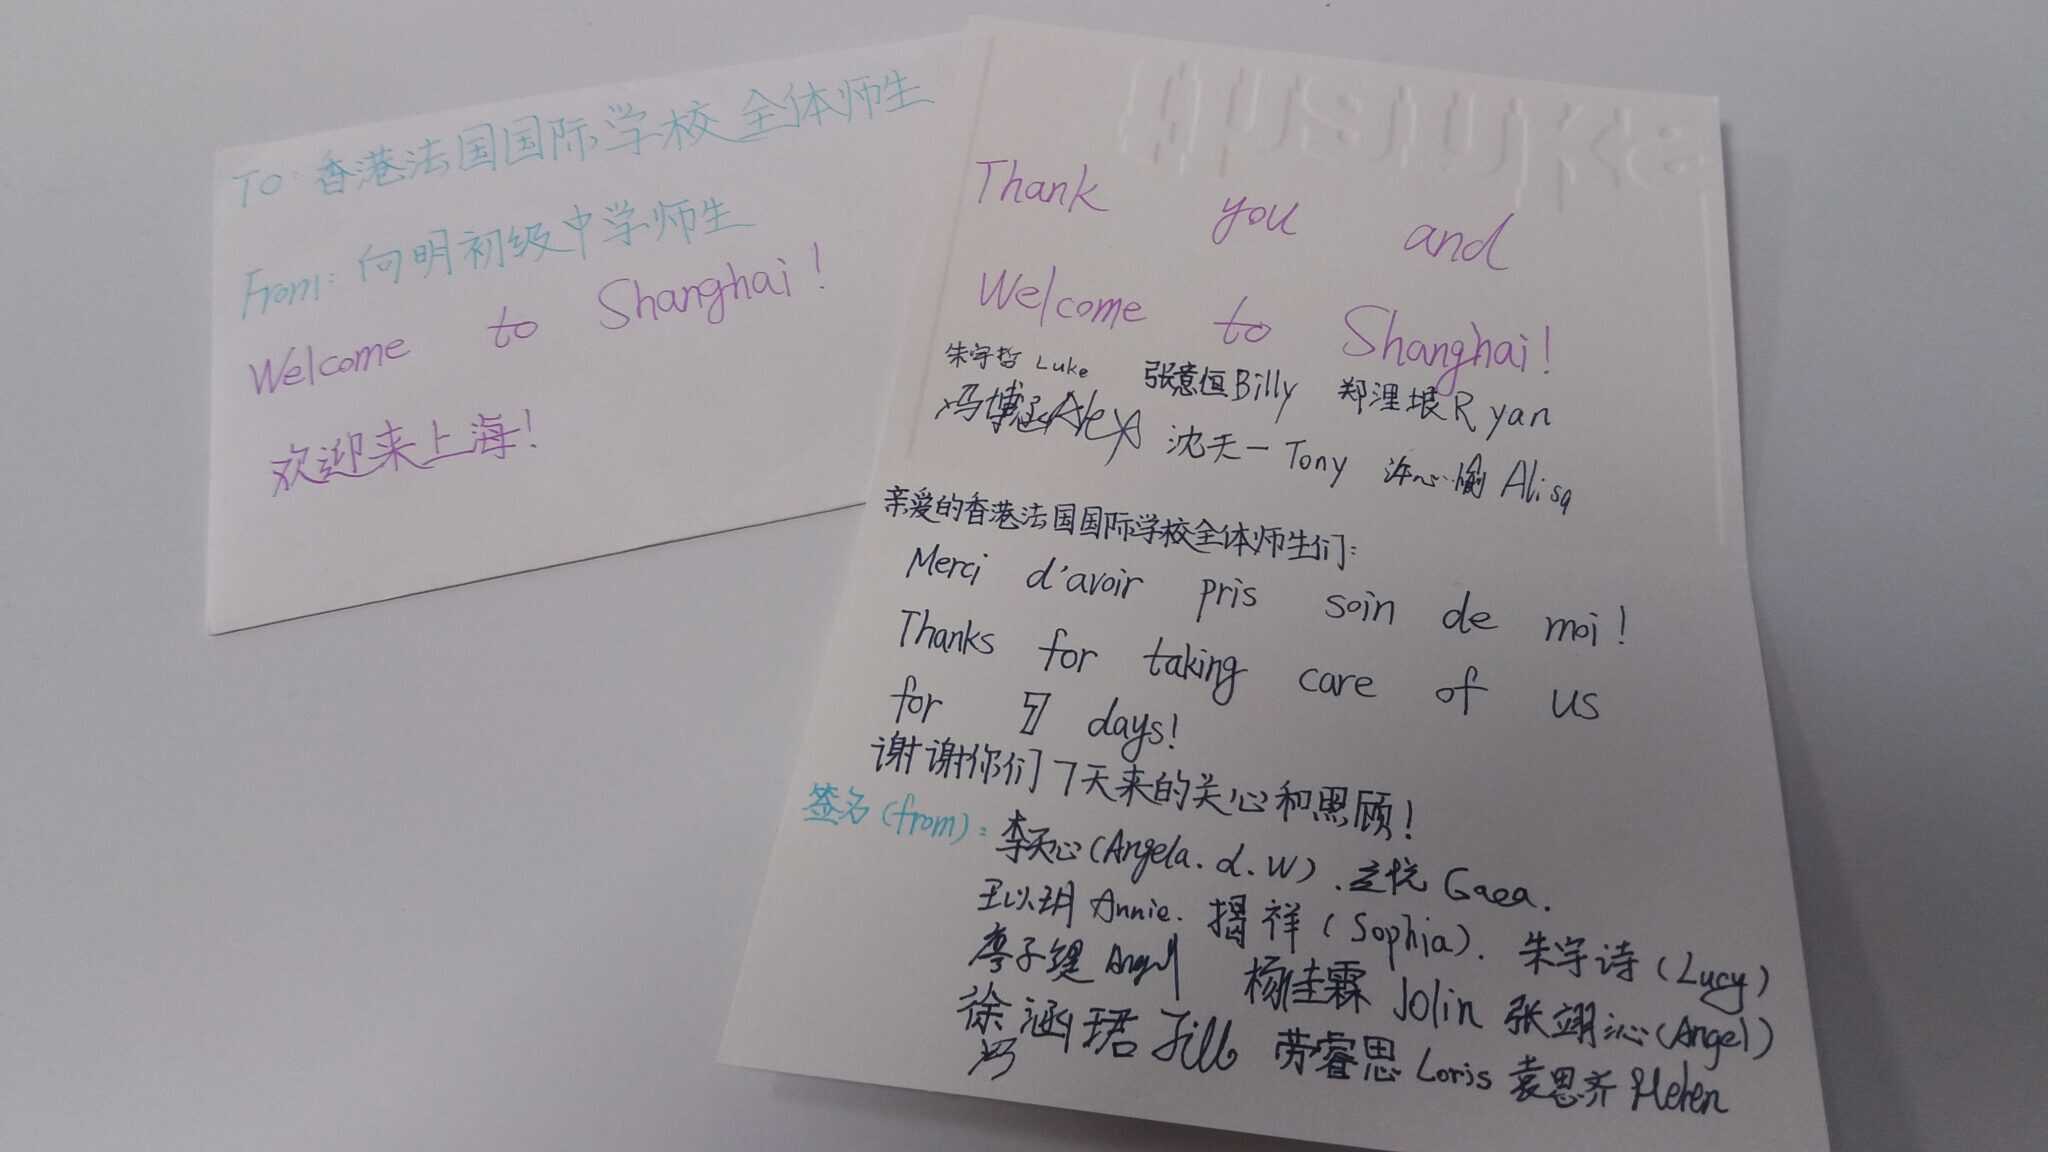 TO: 香港法国国际学校全体师生
From: 向明初级中学师生
Welcome to Shanghai!
欢迎来上海!
Thank you and
Welcome to Shanghai!
朱宇哲 Luke 张意恒 Billy 郑浬垠 Ryan
冯博涵 Alex 沈天一 Tony 许心愉 Alisa
亲爱的香港法国国际学校全体师生们:
Merci d'avoir pris soin de moi!
Thanks for taking care of us
for 7 days!
谢谢你们7天来的关心和照顾!
签名(from): 李天心(Angela. d. W). Gaea.
王以玥 Annie. 揭祥(Sophia). 朱宇诗(Lucy)
廖子缇 Angel 杨佳霖 Jolin 张翊沁(Angel)
徐涵珺 Jill 劳睿思 Loris 袁思齐 Helen
冯